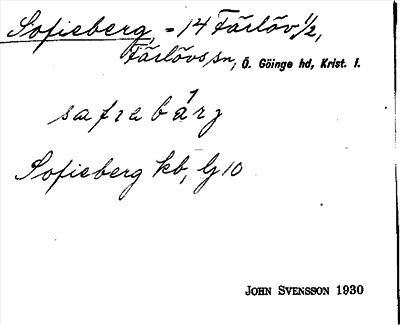 Sofieberg, = 14 Färlöv 1/2,
Färlövs sn, Ö. Göinge hd, Krist. l.
safiebärg
Sofieberg kb, lj 10
JOHN SVENSSON 1930